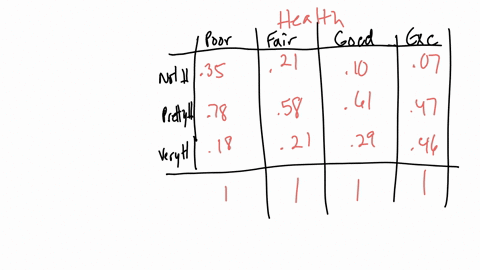 Health
Poor Fair Good Exc
Not H .35 .21 .10 .07
Pretty H .78 .58 .61 .47
Very H .18 .21 .29 .46
1 1 1 1